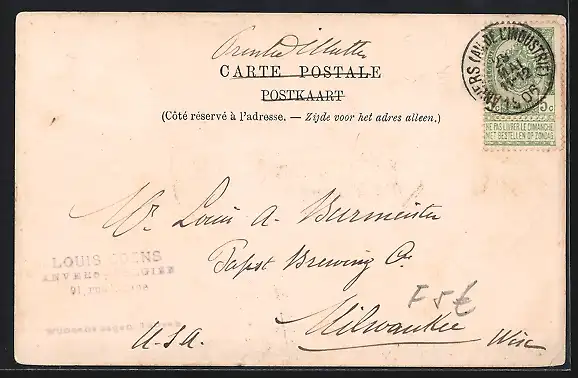 Printed Matter
CARTE POSTALE
POSTKAART
(Côté réservé à l'adresse. — Zijde voor het adres alleen.)
ANVERS (AV. DE L'INDUSTRIE)
12
1906
5c
NE PAS LIVRER LE DIMANCHE
NIET BESTELLEN OP ZONDAG
Mr. Louis A. Burmeister
Pabst Brewing Co.
Milwaukee
Wisc
U.S.A.
LOUIS
ANVERS
91, rue
F 5 €